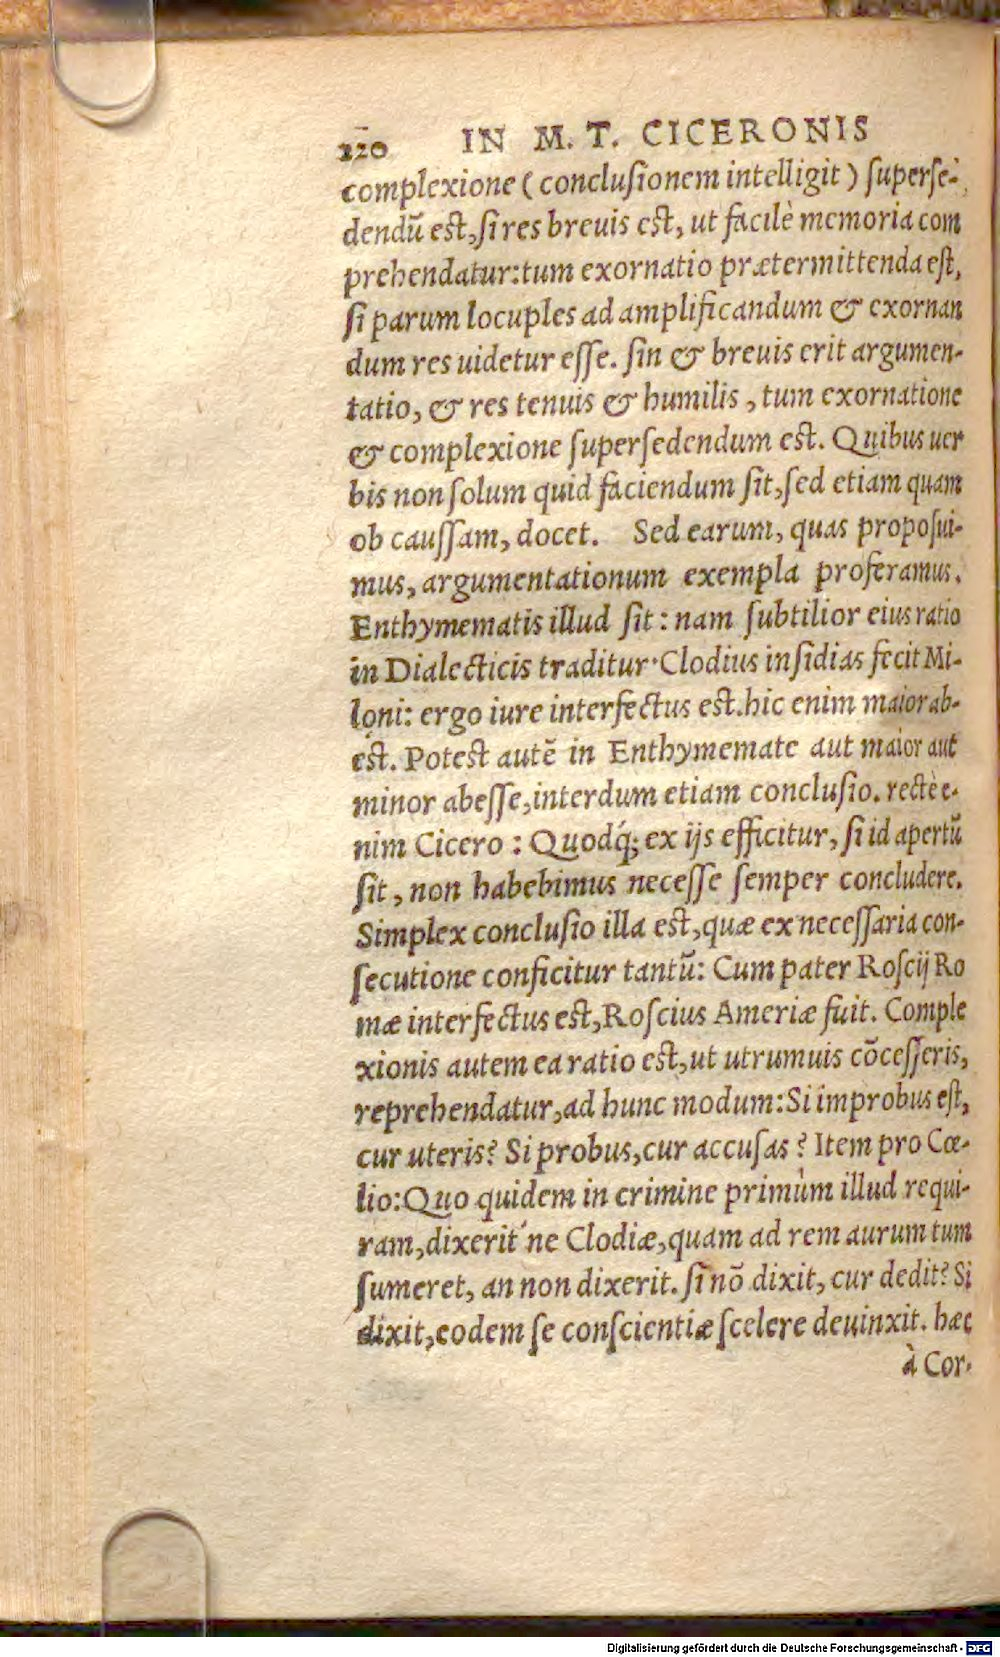 120 IN M. T. CICERONIS
complexione (conclusionem intelligit) superse-
dendũ est, si res brevis est, ut facilè memoria com
prehendatur: tum exornatio prætermittenda est,
si parum locuples ad amplificandum & exornan
dum res uidetur esse. sin & brevis erit argumen-
tatio, & res tenuis & humilis, tum exornatione
& complexione supersedendum est. Quibus uer
bis non solum quid faciendum sit, sed etiam quam
ob caussam, docet. Sed earum, quas proposui-
mus, argumentationum exempla proferamus.
Enthymematis illud sit: nam subtilior eius ratio
in Dialecticis traditur. Clodius insidias fecit Mi-
loni: ergo iure interfectus est. hic enim maior ab-
est. Potest autẽ in Enthymemate aut maior aut
minor abesse, interdum etiam conclusio. rectè e-
nim Cicero: Quodq́; ex ijs efficitur, si id apertũ
sit, non habebimus necesse semper concludere.
Simplex conclusio illa est, quæ ex necessaria con-
secutione conficitur tantũ: Cum pater Roscij Ro
mæ interfectus est, Roscius Ameriæ fuit. Comple
xionis autem ea ratio est, ut utrumuis cõcesseris,
reprehendatur, ad hunc modum: Si improbus est,
cur uteris? Si probus, cur accusas? Item pro Cœ-
lio: Quo quidem in crimine primùm illud requi-
ram, dixerit ́ne Clodiæ, quam ad rem aurum tum
sumeret, an non dixerit. si nõ dixit, cur dedit? Si
dixit, eodem se conscientiæ scelere deuinxit. hæc
à Cor-
Digitalisierung gefördert durch die Deutsche Forschungsgemeinschaft - DFG